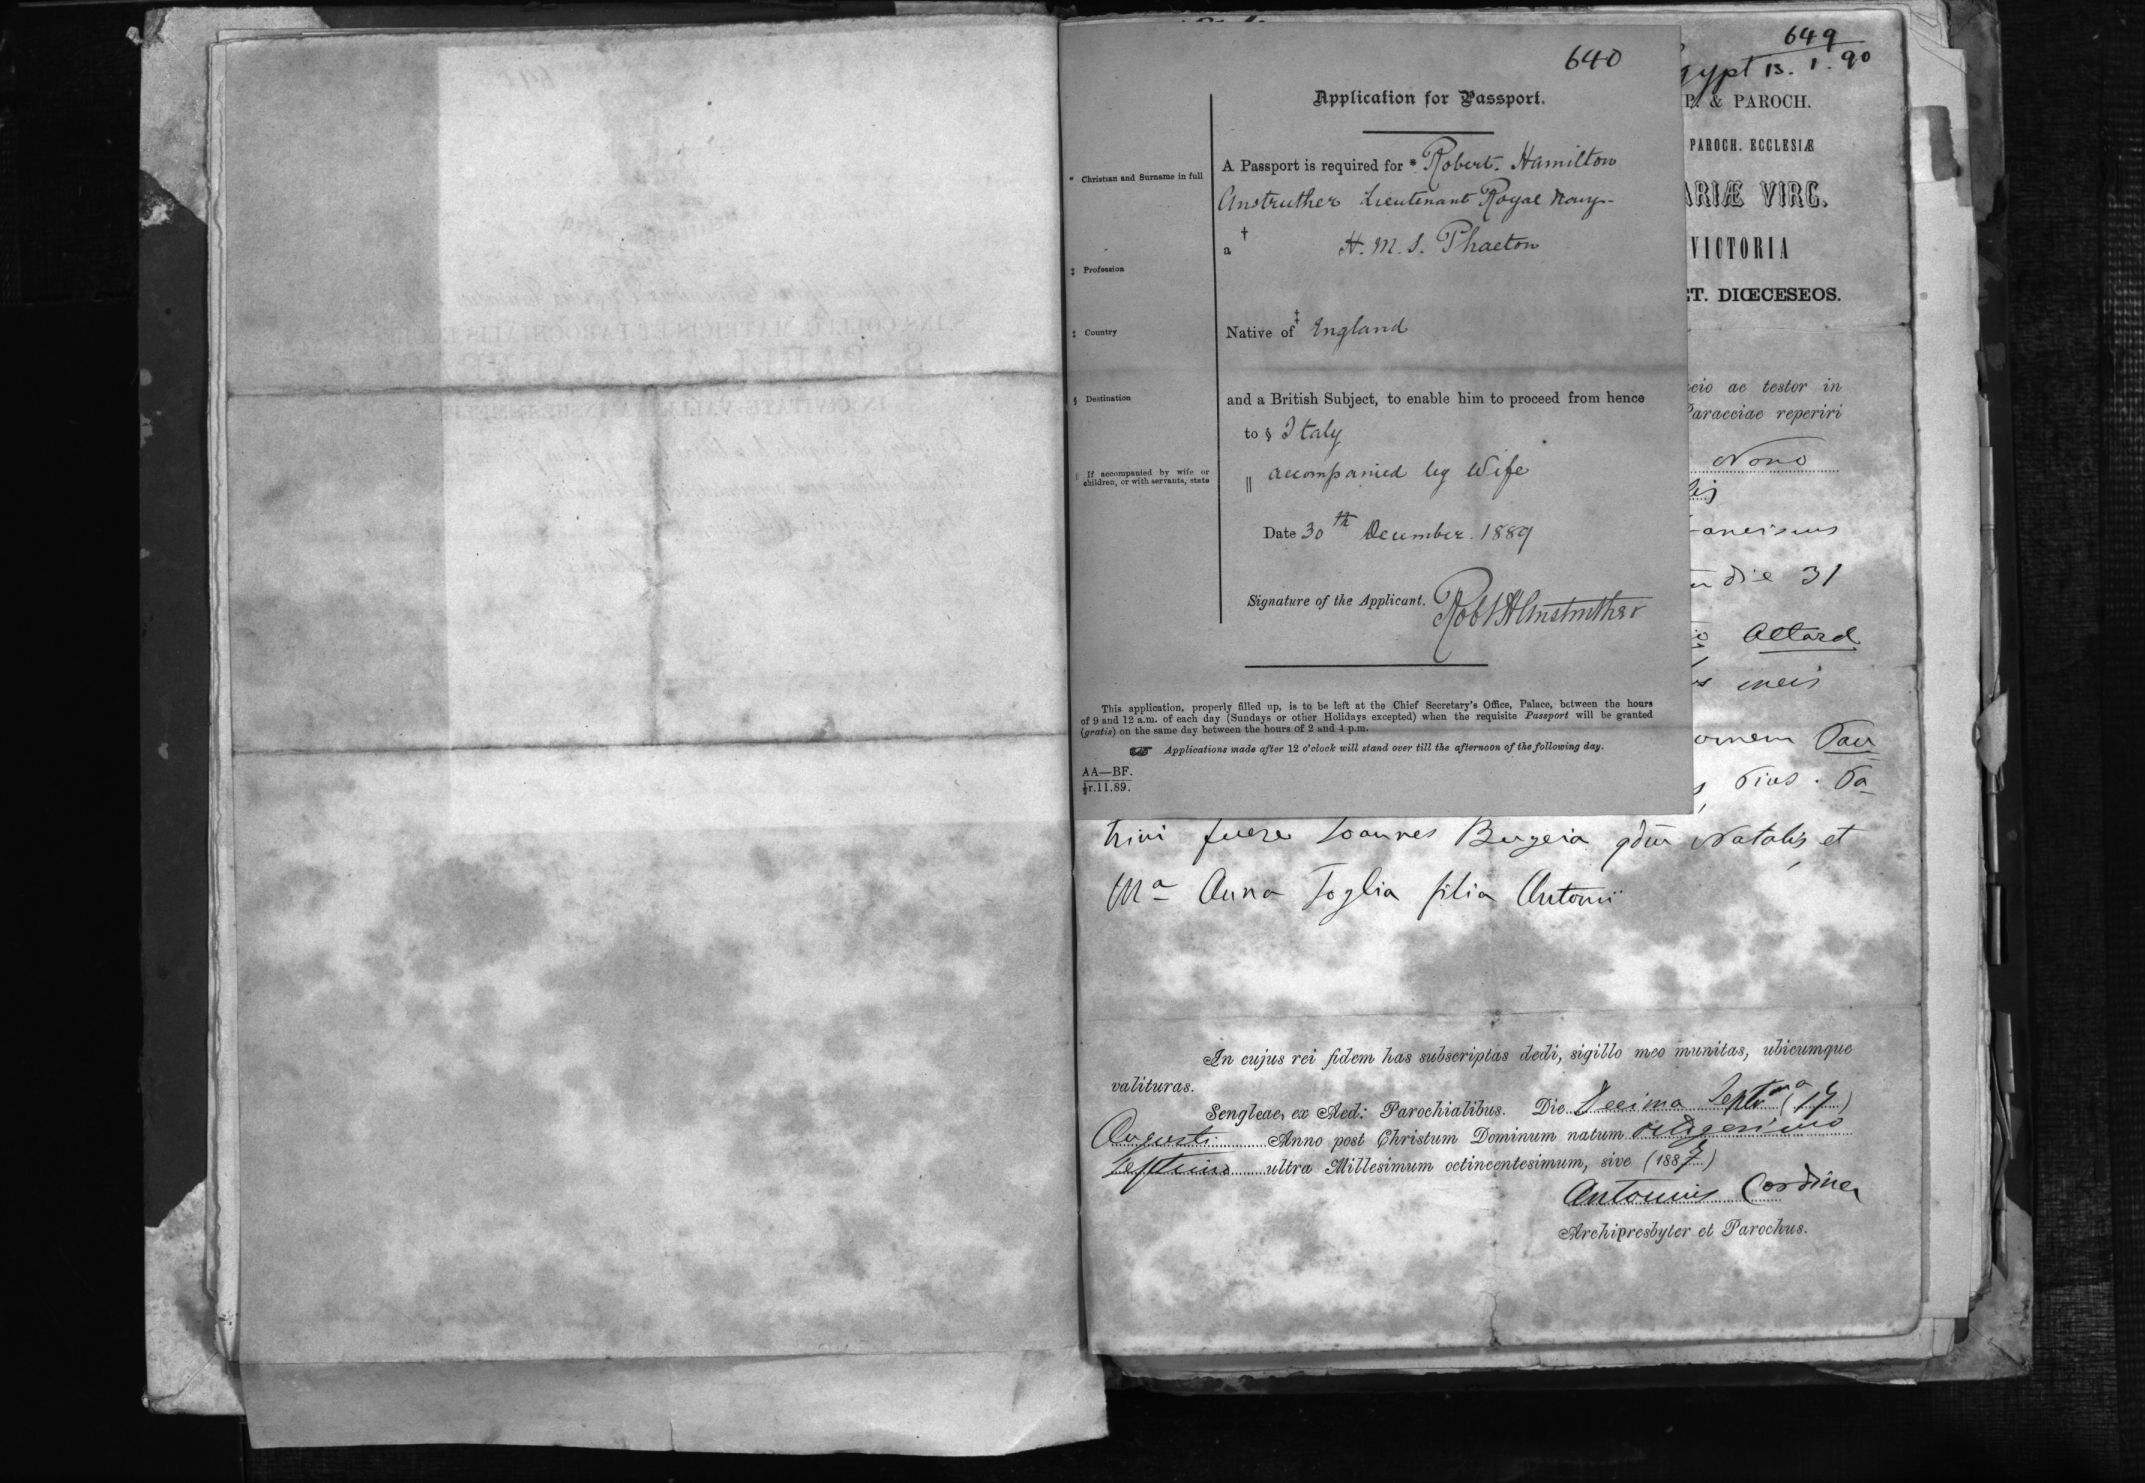 640
Application for Passport.
* Christian and Surname in full
A Passport is required for * Robert. Hamilton
Anstruther Lieutenant Royal Navy.
‡ Profession
a † H. M. S. Phaeton
‡ Country
Native of ‡ England
§ Destination
and a British Subject, to enable him to proceed from hence
to § Italy
If accompanied by wife or
children, or with servants, state
|| accompanied by Wife
Date 30th December. 1889
Signature of the Applicant. Robt H Anstruther
This application, properly filled up, is to be left at the Chief Secretary's Office, Palace, between the hours
of 9 and 12 a.m. of each day (Sundays or other Holidays excepted) when the requisite Passport will be granted
(gratis) on the same day between the hours of 2 and 4 p.m.
Applications made after 12 o'clock will stand over till the afternoon of the following day.
AA—BF.
½r.11.89.
649
gypt 13. 1. 90
P. & PAROCH.
PAROCH. ECCLESIÆ
ARIÆ VIRG.
VICTORIA
ET. DIŒCESEOS.
cio ac testor in
Paraeciae reperiri
Nono
lis
anciscus
die 31
Attard
meis
Pau
Pius. Pa
trini fuere Joannes Bugeia qdm Natalis et
Ma Anna Foglia filia Antonii
In cujus rei fidem has subscriptas dedi, sigillo meo munitas, ubicumque
valituras.
Sengleae, ex Aed: Parochialibus. Die Decima Septma (17)
Augusti Anno post Christum Dominum natum octogesimo
septimo ultra Millesimum octincentesimum, sive (1887)
Antonius Cordina
Archipresbyter et Parochus.